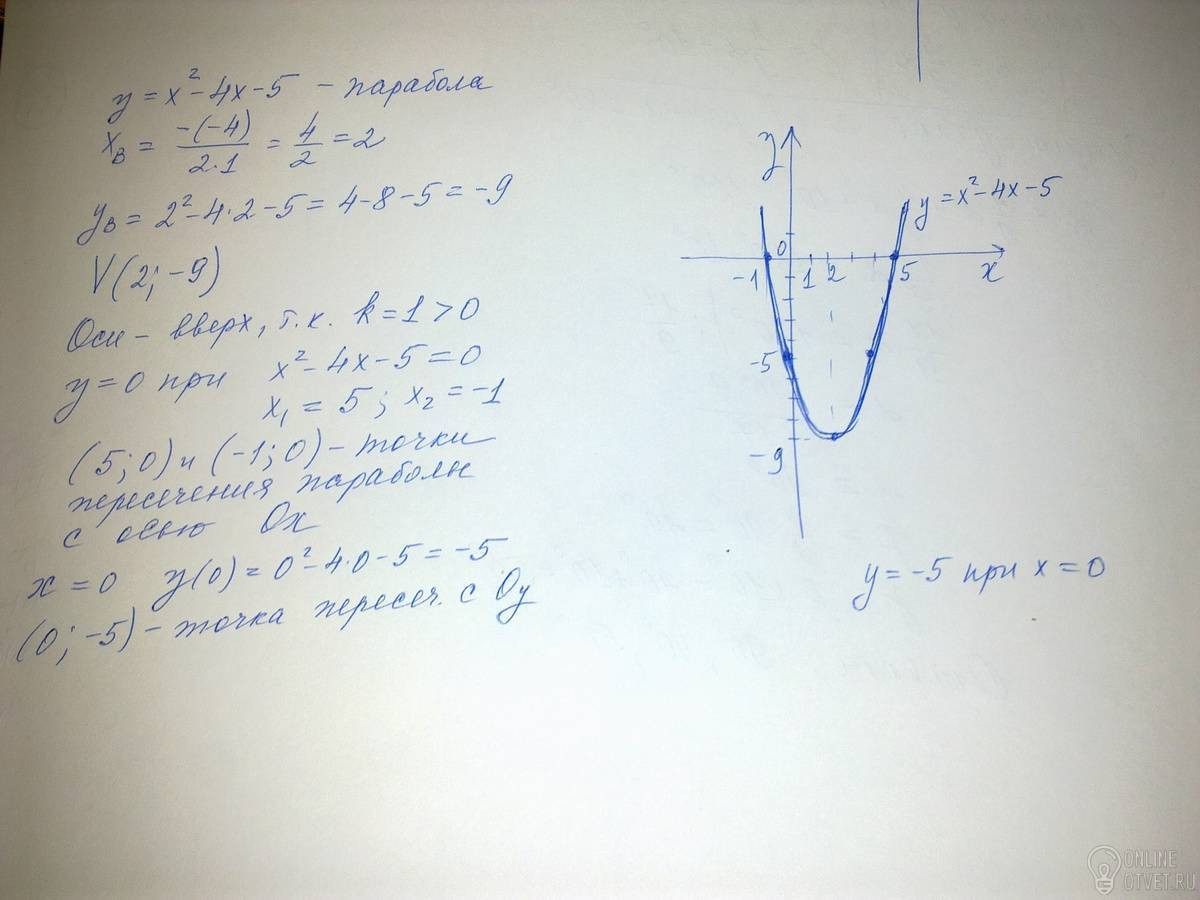 y = x² - 4x - 5 - парабола
x_в = -(-4)/2·1 = 4/2 = 2
y_в = 2² - 4·2 - 5 = 4 - 8 - 5 = -9
V(2; -9)
Оси - вверх, т.к. k = 1 > 0
y = 0 при x² - 4x - 5 = 0
x₁ = 5; x₂ = -1
(5; 0) и (-1; 0) - точки
пересечения параболы
с осью Ox
x = 0 y(0) = 0² - 4·0 - 5 = -5
(0; -5) - точка пересеч. с Oy
y
y = x² - 4x - 5
0
-1 1 2 5 x
-5
-9
y = -5 при x = 0
ONLINE
OTVET.RU